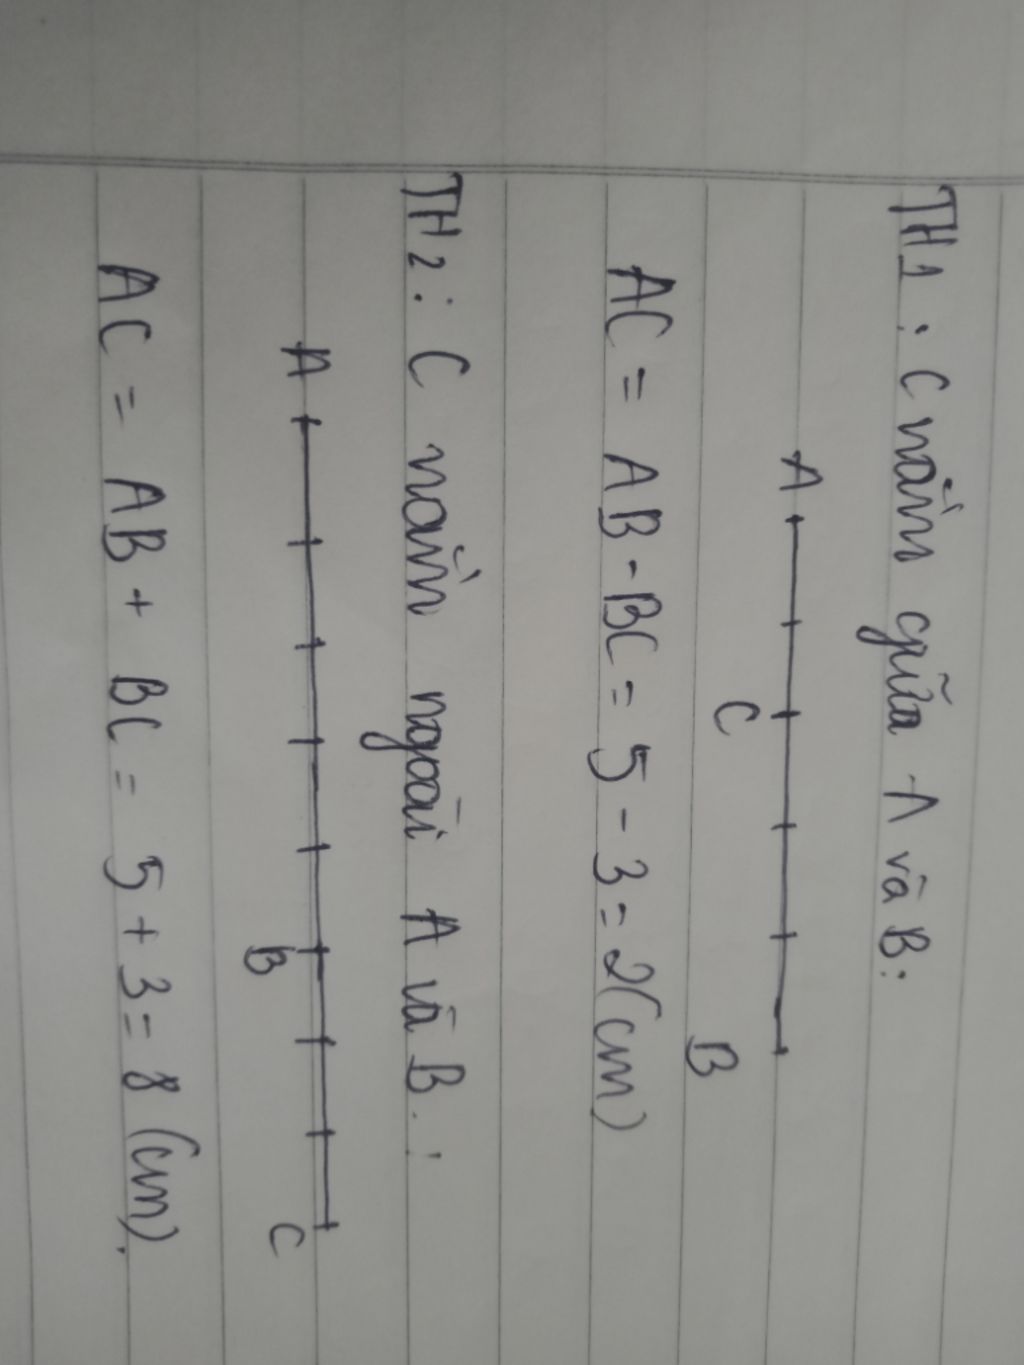 TH1 : C nằm giữa A và B:
A C B
AC = AB - BC = 5 - 3 = 2(cm)
TH2 : C nằm ngoài A và B :
A B C
AC = AB + BC = 5 + 3 = 8 (cm).